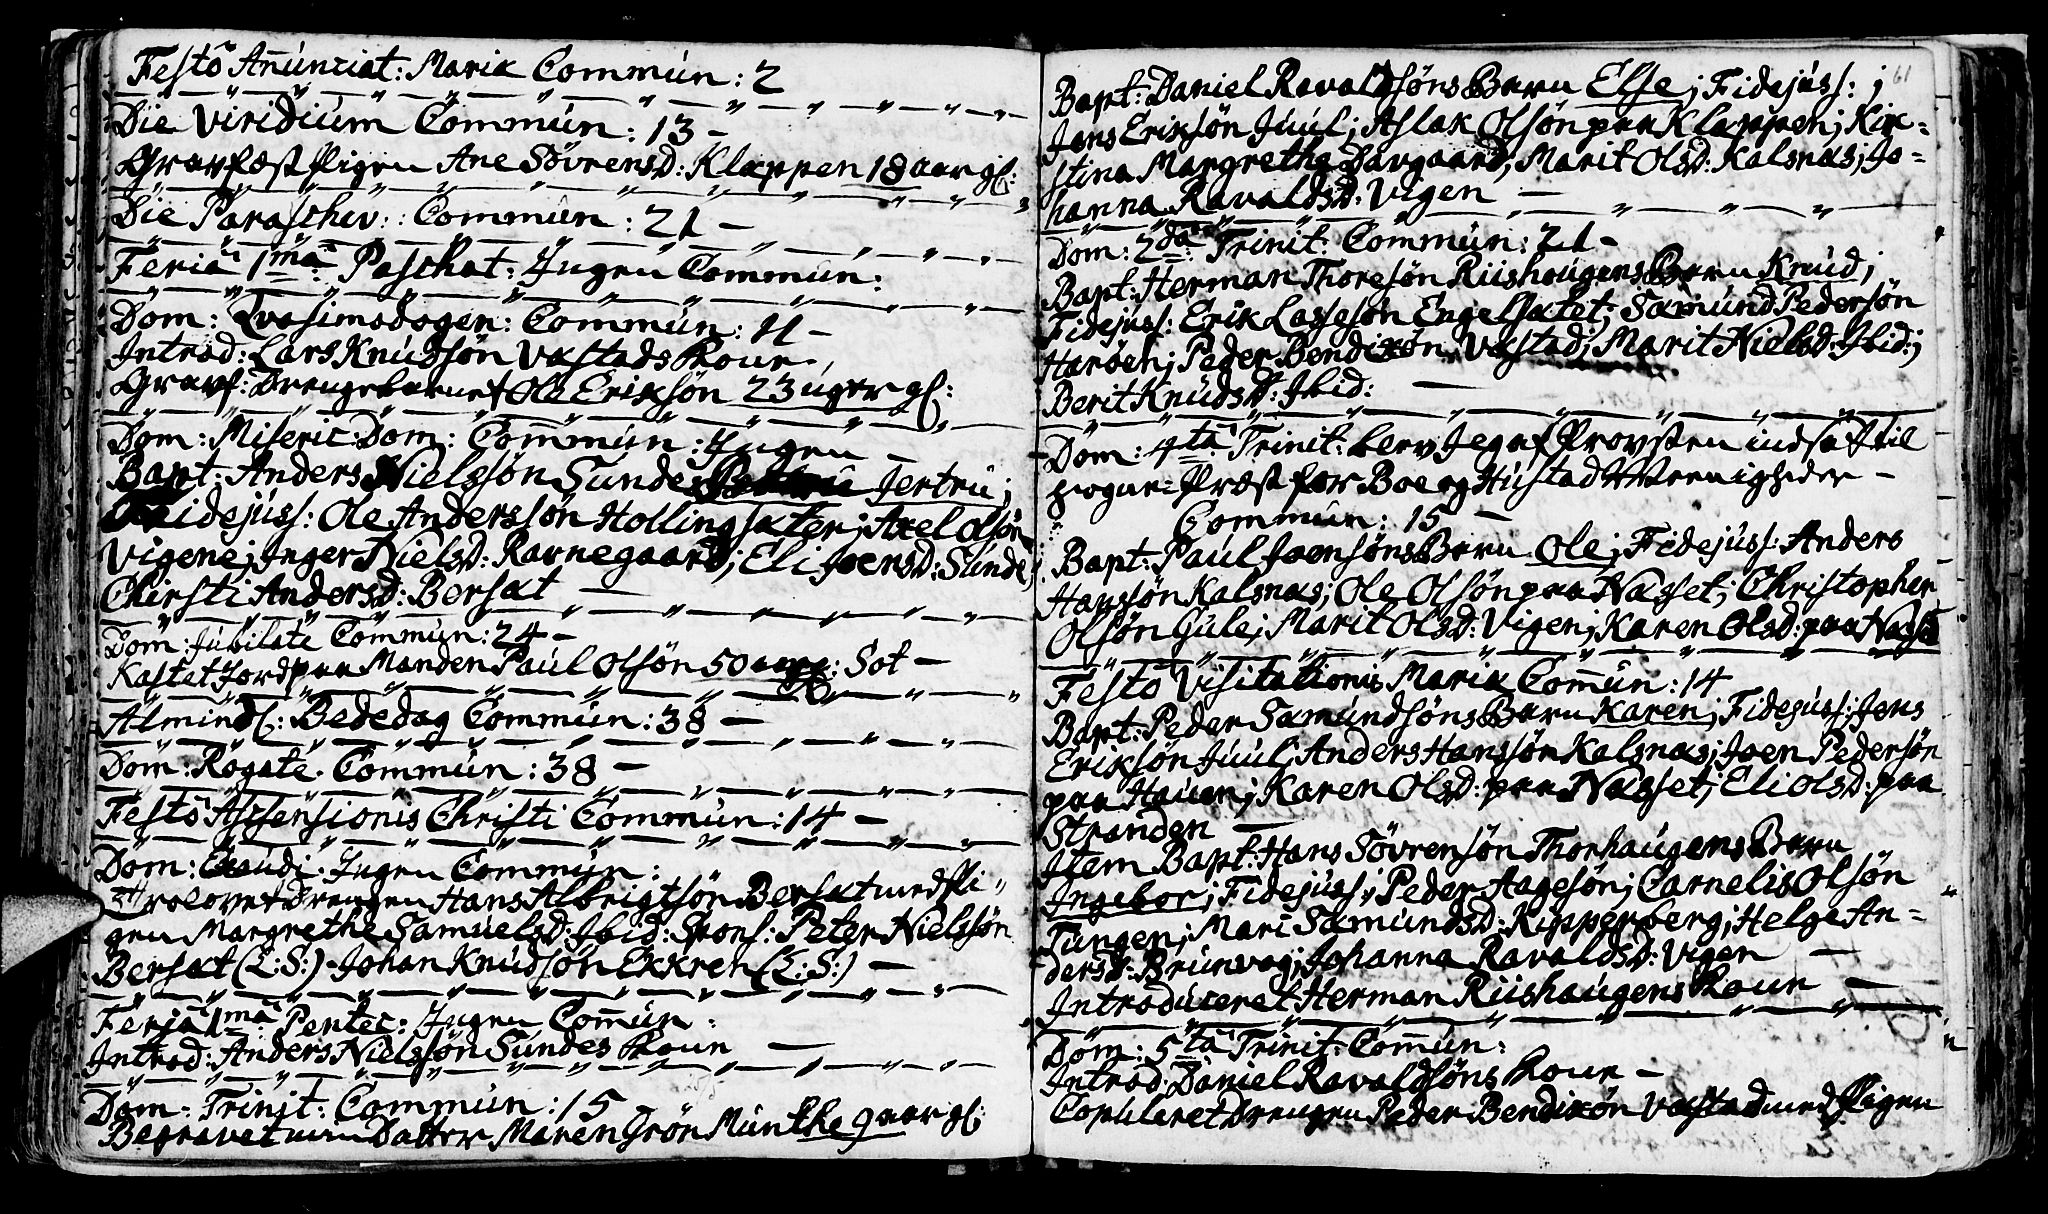 Festo Anunciat: Mariæ Commun: 2
Die Viridium Commun: 13 -
Gravfæst Pigen Ane Sövrensd: Klappen 18 aar gl:
Die Paraschev: Commun: 21 -
Feria 1ma Paschat: Ingen Commun:
Dom: Qvasimodogen: Commun: 11 -
Introd: Lars Knudsön Vastads Kone
Gravf: Drengebarnet Ole Eriksön 23 uger gl:
Dom: Miseric: Dom: Commun: Ingen -
Bapt: Anders Nielssön Sundes Jertru;
Fidejuss: Ole Anderssön Hollingsæter; Axel Olsön
Vigene; Inger Nielsd: Ravnegaard; Eli Joensd: Sunde;
Chirsti Andersd: Bersæt -
Dom: Jubilate Commun: 24 -
Kastet Jord paa Manden Paul Olsön 50 aar gl: Sot -
Almindl: Bededag Commun: 38 -
Dom: Rogate Commun: 38 -
Festo Ascensionis Christi Commun: 14 -
Dom: Exaudi Ingen Commun:
Trolovet Drengen Hans Albrigtsön Bersæt med Pi-
gen Margrethe Samuelsd: Ibid: Spons: Peter Nielssön
Bersæt (L:S:) Johan Knudsön Ekkren (L:S:) -
Feria 1ma Pentec: Ingen Comun:
Introd: Anders Nielssön Sundes Kone -
Dom: Trinit: Commun: 15
Begravet min Datter Maren Grön Munthe 9 aar gl:
61
Bapt: Daniel Ravaldsöns Barn Else; Fidejuss: ;
Jens Eriksön Juul; Aslak Olsön paa Klappen; Kir-
stina Margrethe Davgaard; Marit Olsd: Kalsnæs; Jo-
hanna Ravaldsd: Vigen -
Dom: 2da Trinit: Commun: 21 -
Bapt: Herman Thoresön Riishaugens Barn Knud;
Fidejuss: Erik Lassesön Engelsætet; Sæmund Pedersön
Haröen; Peder Bendixön Vastad; Marit Nielsd: Ibid:;
Berit Knudsd: Ibid: -
Dom: 4ta Trinit: blev Jeg af Provsten indsat til
Sogne-Præst for Boe og Hustad Menigheder -
Commun: 15 -
Bapt: Paul Joensöns Barn Ole; Fidejuss: Anders
Hanssön Kalsnæs; Ole Olsön paa Næsset; Christopher
Olsön Gule; Marit Olsd: Vigen; Karen Olsd: paa Næsset
Festo Visitationis Mariæ Comun: 14
Bapt: Peder Sæmundsöns Barn Karen; Fidejuss: Jens
Eriksön Juul; Anders Hanssön Kalsnæs; Joen Pedersön
paa Hauen; Karen Olsd: paa Næsset; Eli Olsd: paa
Stranden -
Item Bapt: Hans Sövrensön Thorhaugens Barn
Ingebor; Fidejuss: Peder Aagesön; Carnelis Olsön
Tungen; Mari Sæmundsd: Kipperberg; Helge An-
dersd: Brunvog; Johanna Ravaldsd: Vigen -
Introduceret Herman Riishaugens Kone -
Dom: 5ta Trinit: Comun:
Introd: Daniel Ravaldsöns Kone -
Copuleret Drengen Peder Bendixön Vastad med Pigen